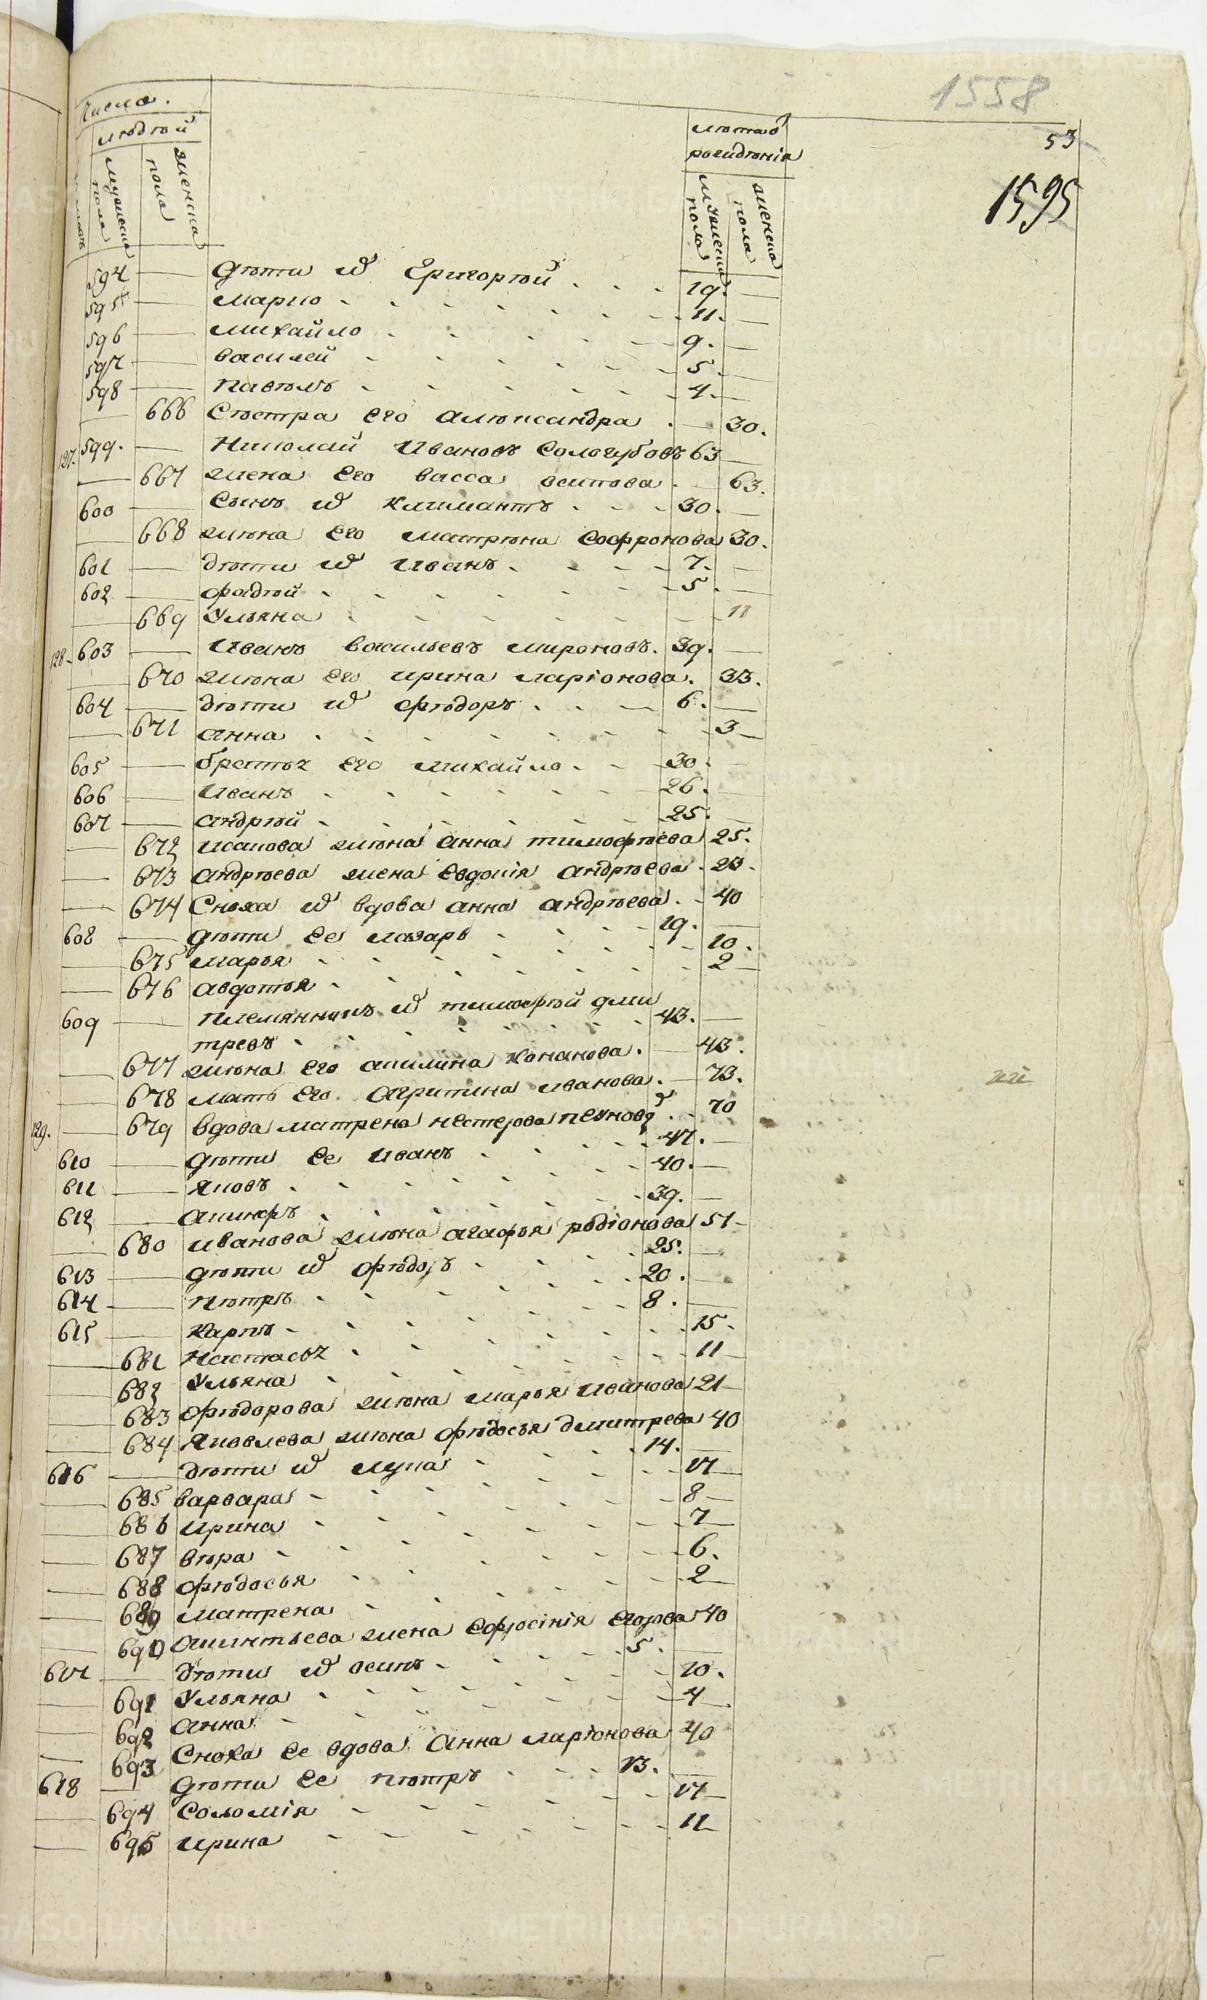 1558
53
1595
Число.
людей
лета от
рождения
мужеска пола
женска пола
мужеска пола
женска пола
594 — дети у Григорей 19. —
595 — Марко 11. —
596 — Михайло 9. —
597 — Василей 5. —
598 — Павелъ 4. —
— 666 Сестра его Александра — 30.
127. 599. — Николай Ивановъ Сологубовъ 63 —
— 667 жена его Васса Осипова — 63.
600 — Сынъ у Климантъ 30. —
— 668 жена его Матрена Софронова 30.
601 — дети у Иванъ 7. —
602 — Фадей 5. —
— 669 Ульяна — 11
128. 603 — Иванъ Васильевъ Мироновъ. 39. —
— 670 жена его Ирина Ларіонова. 33.
604 — дети у Федоръ 6. —
— 671 Анна — 3
605 — братья его Михайло 30. —
606 — Иванъ 26. —
607 — Андрей 25. —
— 672 Исакова жена Анна Тимофеева 25.
— 673 Андреева жена Евдокія Андреева 23.
— 674 Сноха у вдова Анна Андреева. 40
608 — дети ее Лазарь 19. —
— 675 Марья 10.
— 676 Авдотья 2
609 — племянникъ у Тимофей Дми
тревъ 43. —
— 677 жена его Акилина Конанова. — 43.
— 678 мать его Агрипина Иванова. — 73.
129. — 679 вдова Матрена Нестерова 70
610 — дети ее Иванъ 47. —
611 — Яковъ 40. —
612 — Акинфъ 39. —
— 680 Иванова жена Агафья Родіонова 51
613 — дети у Федоръ 25. —
614 — Петръ 20. —
615 — Карпъ 8. —
— 681 Настасья 15.
— 682 Ульяна 11
— 683 Федорова жена Марья Иванова 21
— 684 Яковлева жена Федосья Дмитрева 40
616 — дети у Лука 14. —
— 685 Варвара 17
— 686 Ирина 8
— 687 Вера 7
— 688 Федосья 6.
— 689 Матрена 2
— 690 Акинтьева жена Ефросінія Егорова 40
617 — дети у Осипъ 5. —
— 691 Ульяна 10.
— 692 Анна 4
— 693 Сноха ее вдова Анна Ларіонова 40
618 — дети ее Петръ 13. —
— 694 Соломія 17
— 695 Ирина 11